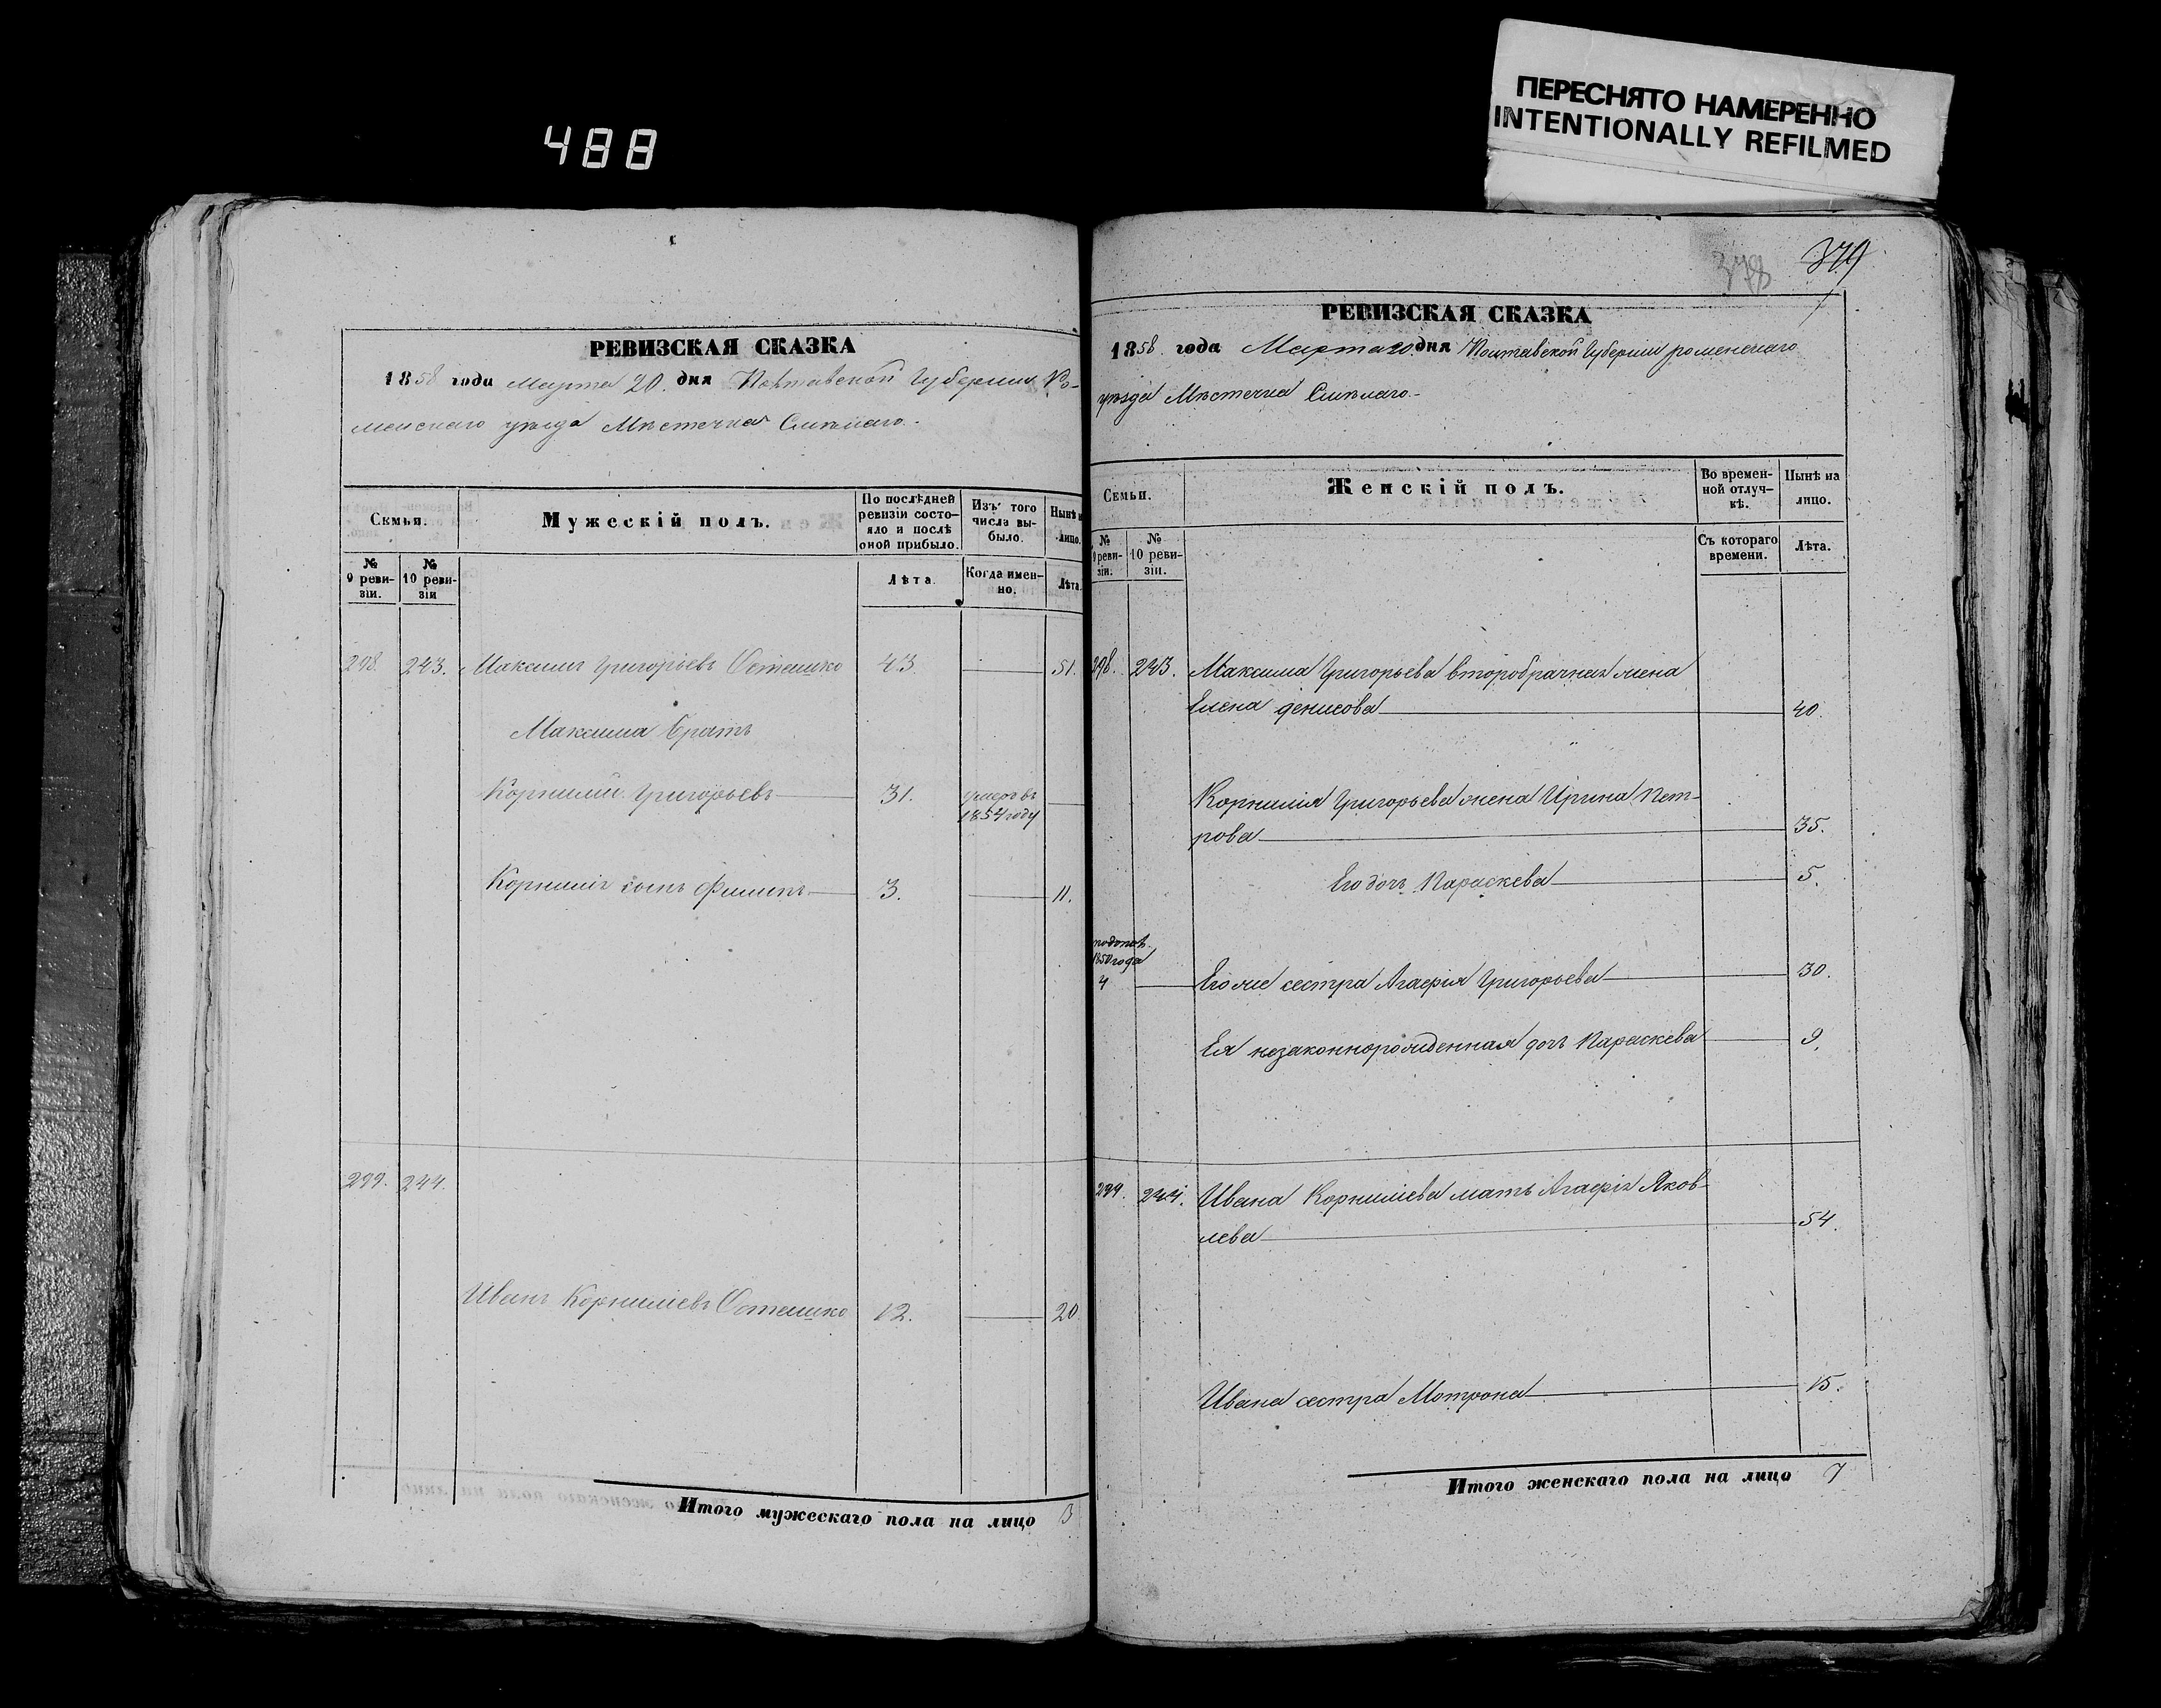 488
ПЕРЕСНЯТО НАМЕРЕННО
INTENTIONALLY REFILMED
РЕВИЗСКАЯ СКАЗКА
1858 года Марта 20. дня Полтавской Губернии Ро-
менскаго уѣзда Мѣстечка Смѣлаго.
Семьи.
Мужескій полъ.
По послѣдней
ревизіи состо-
яло и послѣ
оной прибыло.
Изъ того
числа вы-
было.
Нынѣ н
лицо.
№
9 реви-
зіи.
№
10 реви-
зіи
Лѣта.
Когда имен-
но.
Лѣта.
298. 243. Максимъ Григорьевъ Остишко 43. 51.
Максима братъ
Корнилий Григорьевъ 31. умеръ въ
1854 году
Корнилія сынъ Филипъ 3. 11.
299. 244.
Иванъ Корниліевъ Остишко 12. 20
Итого мужескаго пола на лицо 3
378 379
РЕВИЗСКАЯ СКАЗКА
1858. года Марта 20. дня Полтавской Губернии роменскаго
уѣзда Мѣстечка Смѣлаго.
Семьи.
Женскій полъ.
Во времен-
ной отлуч-
кѣ.
Нынѣ на
лицо.
№
9 реви-
зіи.
№
10 реви-
зіи.
Съ котораго
времени.
Лѣта.
298. 243. Максима Григорьева второбрачная жена
Елена денисова 40.
Корнилія Григорьева жена Ирина Пет-
рова 35.
Его дочь Параскева 5.
1850 года
4 Его же сестра Агафія Григорьева 30.
Ея незаконнорожденная дочь Параскева 9.
299. 244. Ивана Корниліева мать Агафія Яков-
лева 54.
Ивана сестра Мотрона 15.
Итого женскаго пола на лицо 7